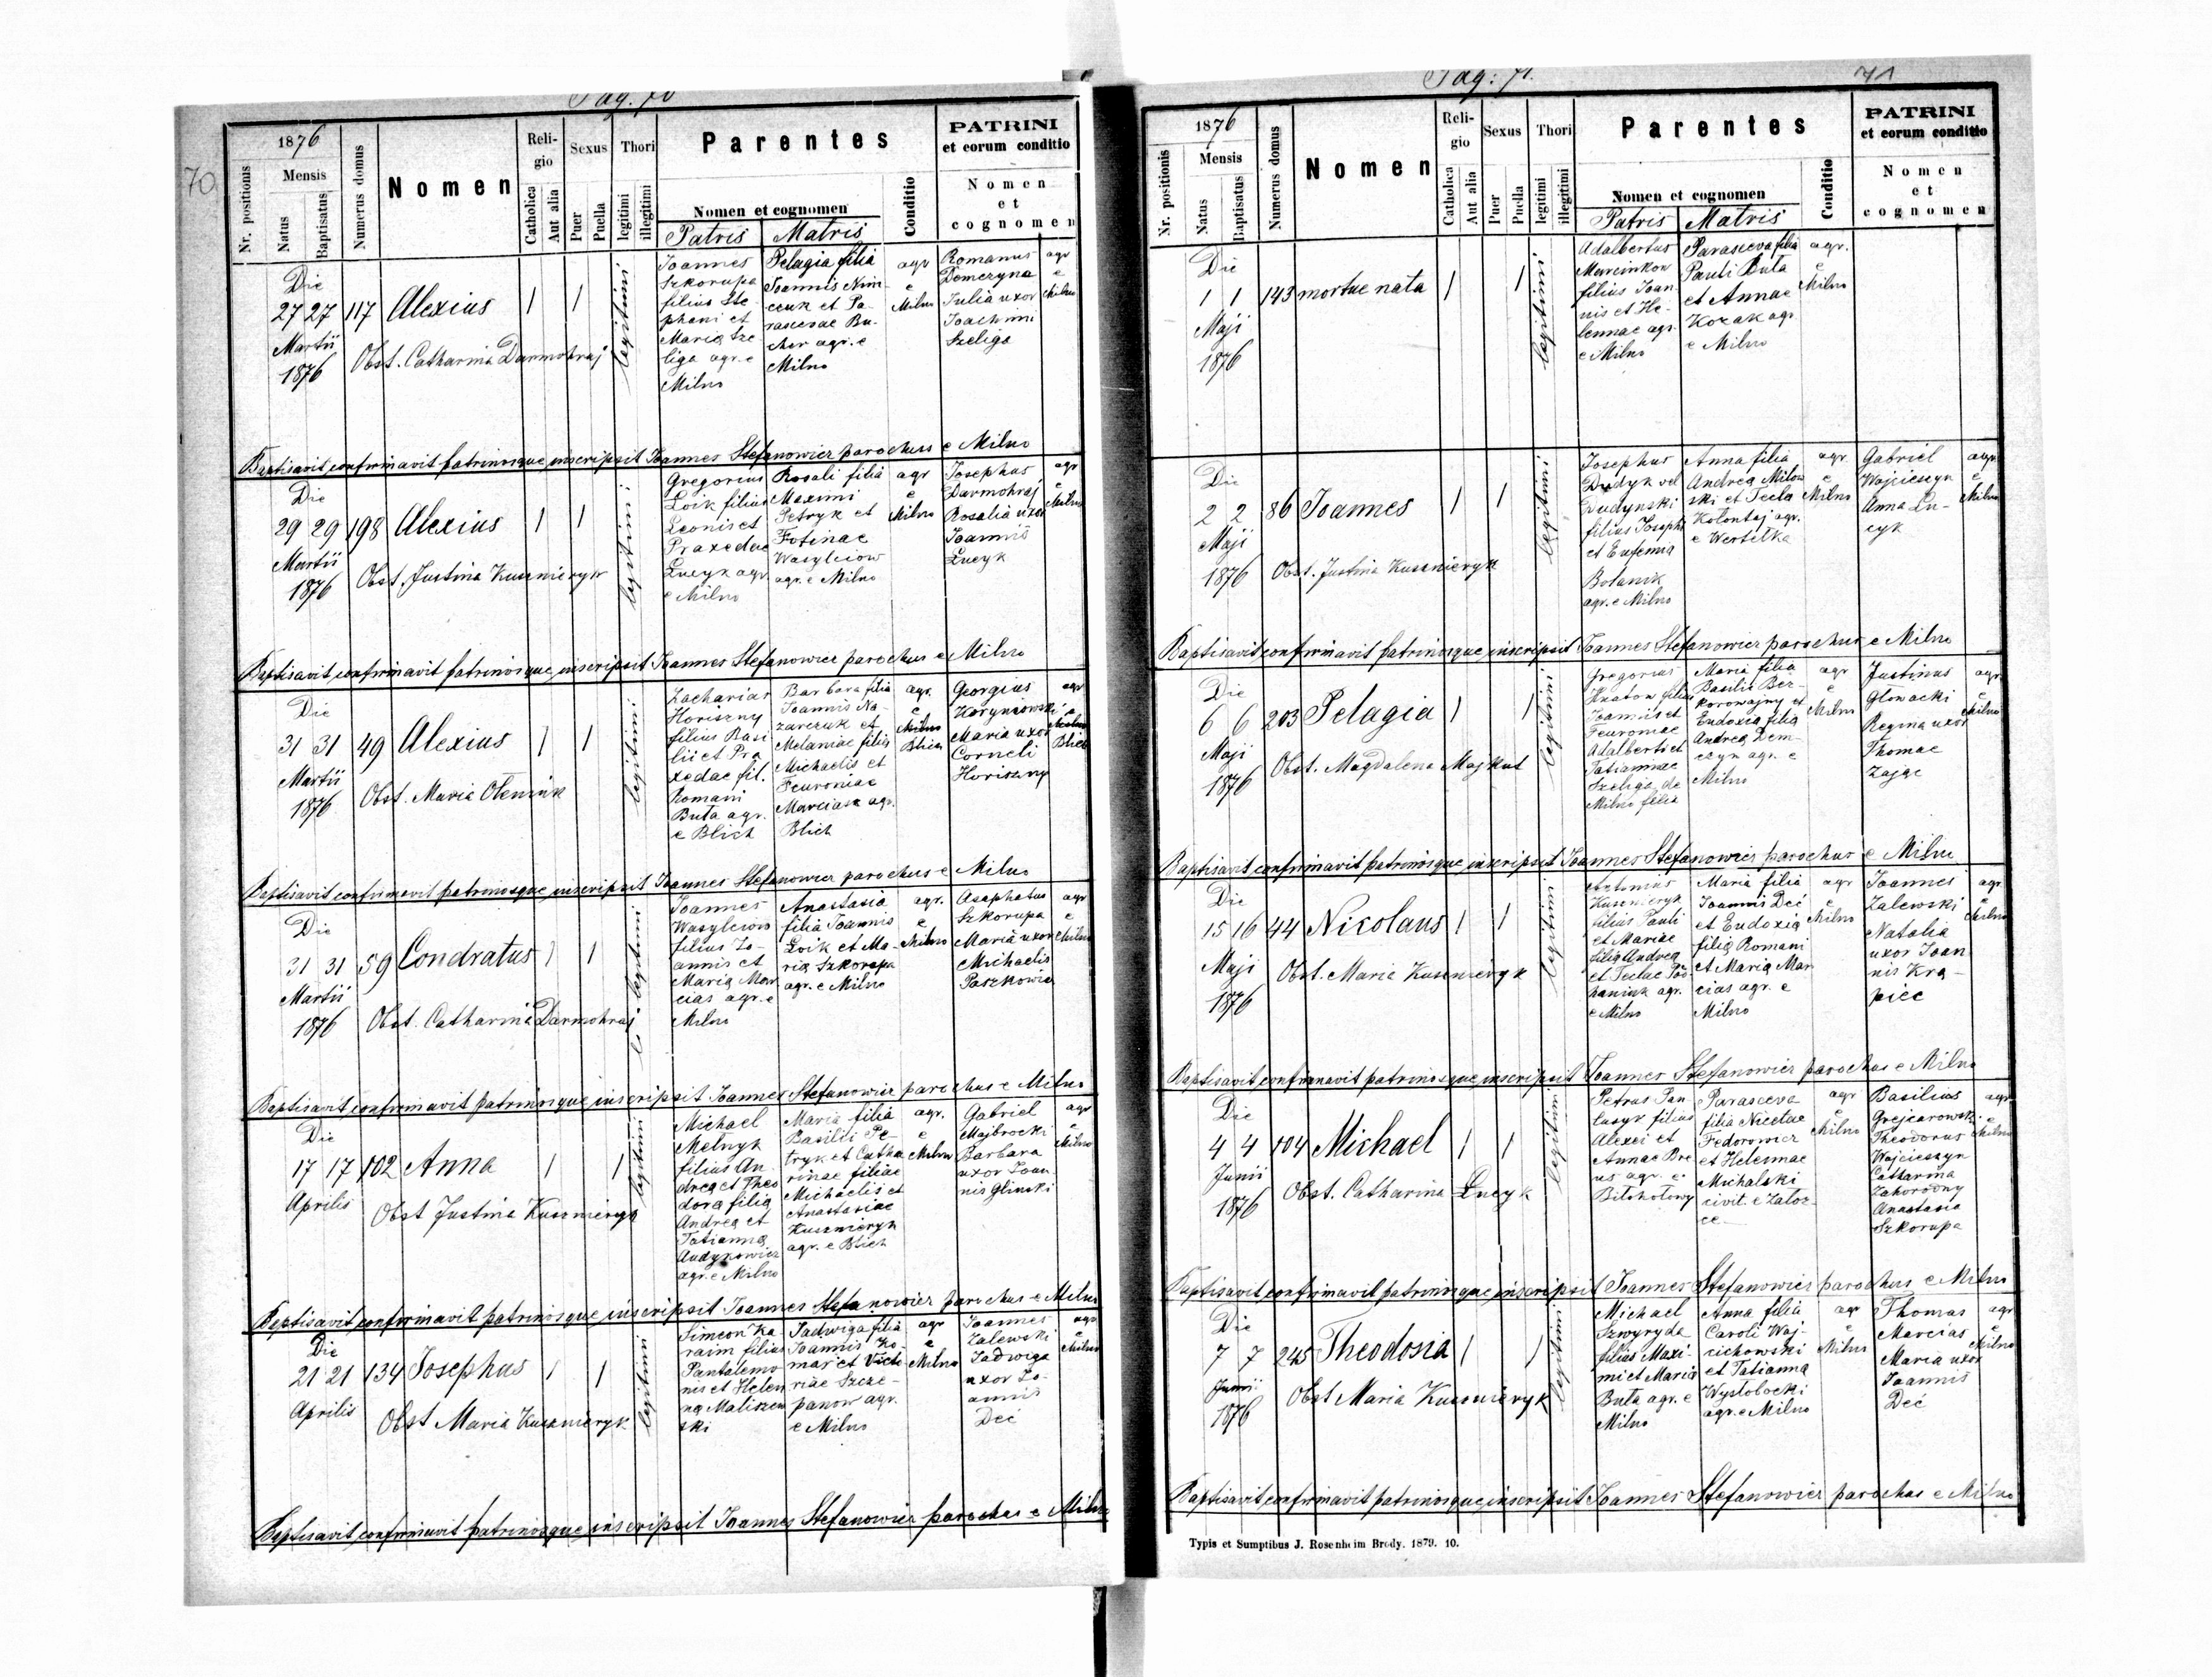 Pag. 70
70
1876
Nr. positionis
Mensis
Natus
Baptisatus
Numerus domus
Nomen
Reli-
gio
Catholica
Aut alia
Sexus
Puer
Puella
Thori
legitimi
illegitimi
Parentes
Nomen et cognomen
Patris
Matris
Conditio
PATRINI
et eorum conditio
Nomen
et
cognomen
Die
27 27 117 Alexius 1 1
Martii
1876
Obst. Catharina Darmohraj
legitimi
Joannes
Szkorupa
filius Ste-
phani et
Maria Sze
liga agr. e
Milno
Pelagia filia
Joannis Nim-
czuk et Pa-
rascevae Bu-
cher agr. e
Milno
agr
e
Milno
Romanus
Demczyna
Julia uxor
Joachimi
Szeliga
agr
e
Milno
Baptisavit confirmavit patrinosque inscripsit Joannes Stefanowicz parochus e Milno
Die
29 29 198 Alexius 1 1
Martii
1876
Obst. Justina Kusznieryk
legitimi
Gregorius
Loik filius
Leonis et
Praxedae
Lucyk agr.
e Milno
Rosali filia
Maximi
Petryk et
Fotinae
Wasylciow
agr. e Milno
agr
e
Milno
Josephus
Darmohraj
Rosalia uxor
Joannis
Lucyk
agr
e
Milno
Baptisavit confirmavit patrinosque inscripsit Joannes Stefanowicz parochus e Milno
Die
31 31 49 Alexius 1 1
Martii
1876
Obst. Maria Oleniuk
legitimi
Zacharias
Horiszny
filius Basi
lii et Pra
xedae fil.
Romani
Buta agr.
e Blich
Barbara filia
Joannis Na-
zarczuk et
Melaniae filia
Michaelis et
Feuroniae
Marciasz agr.
Blich
agr.
e
Milno
Blich
Georgius
Korynkowski
Maria uxor
Corneli
Horiszny
agr
e
Blich
Baptisavit confirmavit patrinosque inscripsit Joannes Stefanowicz parochus e Milno
Die
31 31 59 Condratus 1 1
Martii
1876
Obst. Catharina Darmohraj
legitimi
Joannes
Wasylciow
filius Jo-
annis et
Maria Mar
cias agr. e
Milno
Anastasia
filia Joannis
Loik et Ma-
ria Szkorupa
agr. e Milno
agr.
e
Milno
Asaphatus
Szkorupa
Maria uxor
Michaelis
Paszkowicz
agr
e
Milno
Baptisavit confirmavit patrinosque inscripsit Joannes Stefanowicz parochus e Milno
Die
17 17 102 Anna 1 1
Aprilis
Obst Justina Kusznieryk
legitimi
Michael
Melnyk
filius An-
drea et Theo
dora filia
Andrea et
Tatianna
Audykowicz
agr. e Milno
Maria filia
Basilii Pe-
tryk et Catha
rinae filiae
Michaelis et
Anastasiae
Kusznieryk
agr. e Blich
agr.
e
Milno
Gabriel
Majbrocki
Barbara
uxor Joan
nis Glinski
agr
e
Milno
Baptisavit confirmavit patrinosque inscripsit Joannes Stefanowicz parochus e Milno
Die
21 21 134 Josephus 1 1
Aprilis
Obst Maria Kusznieryk
legitimi
Simeon Ka
raim filius
Pantalemo
nis et Helen
na Maliszew
ski
Jadwiga filia
Joannis Ko-
mar et Victo
riae Szcze-
panow agr.
e Milno
agr
e
Milno
Joannes
Zalewski
Jadwiga
uxor Jo-
annis
Deć
agr
e
Milno
Baptisavit confirmavit patrinosque inscripsit Joannes Stefanowicz parochus e Milno
Pag: 71.
71
1876
Nr. positionis
Mensis
Natus
Baptisatus
Numerus domus
Nomen
Reli-
gio
Catholica
Aut alia
Sexus
Puer
Puella
Thori
legitimi
illegitimi
Parentes
Nomen et cognomen
Patris
Matris
Conditio
PATRINI
et eorum conditio
Nomen
et
cognomen
Die
1 1 143 mortue nata 1 1
Maji
1876
legitimi
Adalbertus
Marcinkow
filius Joan-
nis et He-
lennae agr.
e Milno
Parasceva filia
Pauli Buta
et Annae
Kozak agr.
e Milno
agr.
e
Milno
Die
2 2 86 Joannes 1 1
Maji
1876
Obst. Justina Kusznieryk
legitimi
Josephus
Dudyk vel
Dudynski
filius Josephi
et Eufemia
Bolanik
agr. e Milno
Anna filia
Andrea Milow
ski et Tecla
Kolontaj agr.
e Wertelka
agr.
e
Milno
Gabriel
Wojcieszyn
Anna Lu-
cyk
agr.
e
Milno
Baptisavit confirmavit patrinosque inscripsit Joannes Stefanowicz parochus e Milno
Die
6 6 203 Pelagia 1 1
Maji
1876
Obst. Magdalena Majkut
legitimi
Gregorius
Hnatow filius
Joannis et
Feuroniae
Adalberti et
Tatiannae
Szeliga de
Milno filia
Maria filia
Basilii Bez-
korowajny et
Eudoxia filia
Andrea Dem-
czyn agr. e
Milno
agr
e
Milno
Justinus
Głowacki
Regina uxor
Thomae
Zając
agr.
e
Milno
Baptisavit confirmavit patrinosque inscripsit Joannes Stefanowicz parochus e Milno
Die
15 16 44 Nicolaus 1 1
Maji
1876
Obst. Maria Kusznieryk
legitimi
Antonius
Kusznieryk
filius Pauli
et Mariae
filia Andrea
et Teclae Pod
haniuk agr.
e Milno
Maria filia
Joannis Deć
et Eudoxia
filia Romani
et Maria Mar
cias agr. e
Milno
agr
e
Milno
Joannes
Zalewski
Natalia
uxor Joan
nis Kra-
piec
agr.
e
Milno
Baptisavit confirmavit patrinosque inscripsit Joannes Stefanowicz parochus e Milno
Die
4 4 104 Michael 1 1
Junii
1876
Obst. Catharina Lucyk
legitimi
Petrus Pan
casyk filius
Alexei et
Annae Bre
us agr. e
Bilohołowy
Parasceva
filia Nicetae
Fedorowicz
et Helennae
Michalski
civit. e Załoz-
ce
agr
e
Milno
Basilius
Grejcarowski
Theodorus
Wojcieszyn
Catharina
Zahorodny
Anastasia
Szkorupa
agr
e
Milno
Baptisavit confirmavit patrinosque inscripsit Joannes Stefanowicz parochus e Milno
Die
7 7 245 Theodosia 1 1
Junii
1876
Obst Maria Kusznieryk
legitimi
Michael
Szwyryda
filius Maxi-
mi et Maria
Buta agr. e
Milno
Anna filia
Caroli Woj-
cichowski
et Tatianna
Wystobocki
agr. e Milno
agr
e
Milno
Thomas
Marcias
Maria uxor
Joannis
Deć
agr
e
Milno
Baptisavit confirmavit patrinosque inscripsit Joannes Stefanowicz parochus e Milno
Typis et Sumptibus J. Rosenheim Brody. 1879. 10.